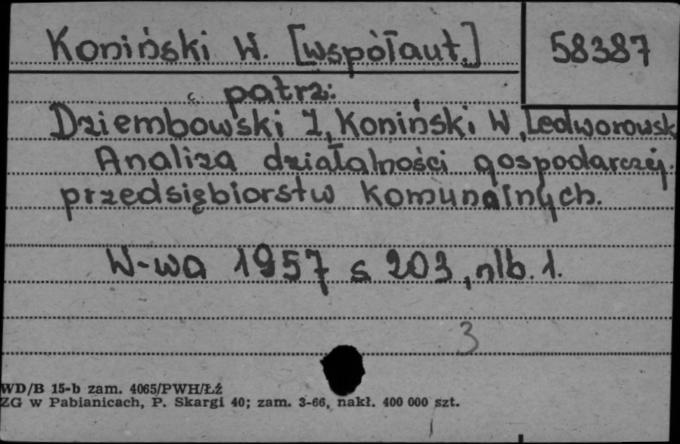 Koniński W. [współaut.] 58387
patrz:
Dziembowski Z, Koniński W, Ledworowsk
Analiza działalności gospodarczej
przedsiębiorstw komunalnych.
W-wa 1957 s 203, nlb. 1.
3
WD/B 15-b zam. 4065/PWH/Łź
ZG w Pabianicach, P. Skargi 40; zam. 3-66, nakł. 400 000 szt.